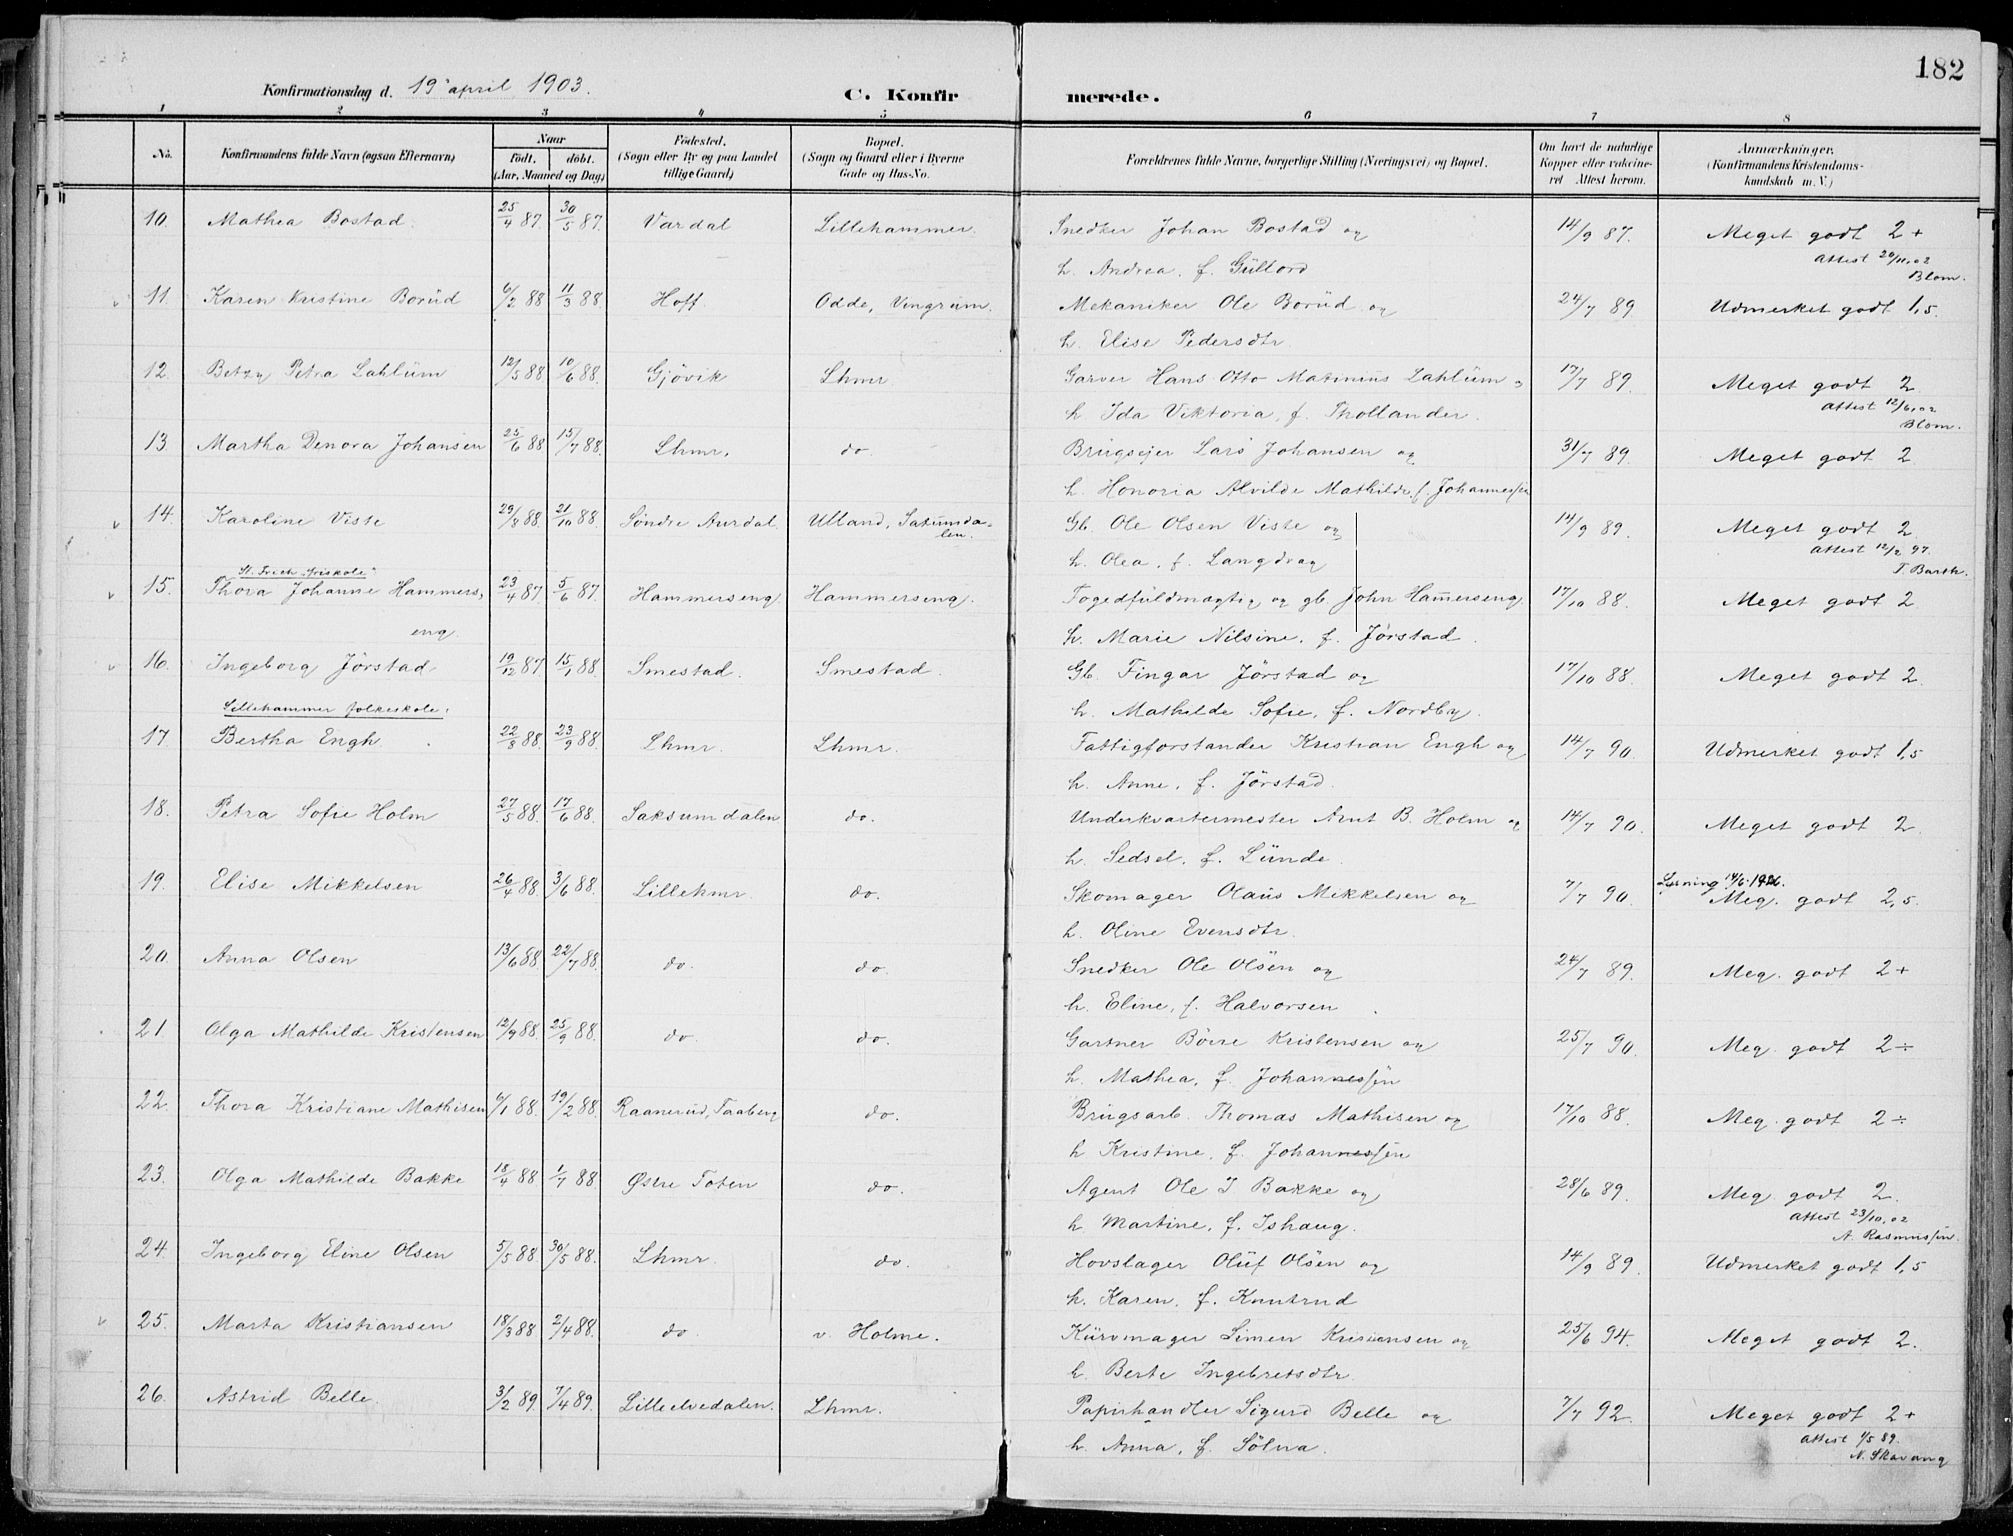 182
Konfirmationsdag d. 19 april 1903.
C. Konfirmerede.
1 2 3 4 5 6 7 8
No.
Konfirmandens fulde Navn (ogsaa Efternavn)
Naar
født. døbt.
(Aar, Maaned og Dag)
Fødested.
(Sogn eller By og paa Landet
tillige Gaard)
Bopæl.
(Sogn og Gaard eller i Byerne
Gade og Hus-No.
Forældrenes fulde Navne, borgerlige Stilling (Næringsvei) og Bopæl.
Om havt de naturlige
Kopper eller vakcine-
ret Attest herom.
Anmærkninger.
(Konfirmandens Kristendoms-
kundskab m. V.)
10. Mathea Bostad. 25/4 87. 30/5 87. Vardal Lillehammer. Snedker Johan Bostad og 14/9 87. Meget godt 2+
h. Andrea, f. Güllord Attest 20/11.02
Blom.
11. Karen Kristine Borüd 6/2 88 11/3 88. Hoff. Odde, Vingrum. Mekaniker Ole Borüd og 24/7 89 Udmerket godt 1,5.
h. Elise Pedersdtr.
12. Betzy Petra Lahlüm 12/5 88 10/6 88. Gjövik Lhmr Garver Hans Otto Matinius Lahlüm o 17/7 89. Meget godt 2
h Ida Viktoria, f. Thollander. Attest 12/6.02
Blom.
13. Martha Denora Johansen 25/6 88 15/7 88. Lhmr. do. Brugseier Lars Johansen og 31/7 89. Meget godt 2
h. Honoria Alvilde Mathilde f. Johannessen
14. Karoline Viste 29/8 88. 21/10 88. Søndre Aurdal. Ulland, Saxumda-
len.
Gb. Ole Olsen Viste og 14/9 89. Meget godt 2
h. Olea, f. Langdrag Attest 12/2 97.
T. Barth.
15. Thora Johanne Hammers, 23/4 87. 5/6 87. Hammerseng. Hammerseng. Fogedfuldmægtig og gb. John Hamerseng. 17/10 88. Meget godt 2
eng. h. Marie Nilsine, f. Jörstad.
16. Ingeborg Jörstad 19/12 87 15/1 88. Smestad. Smestad. Gb. Fingar Jörstad og 17/10 88. Meget godt 2.
Lillehammer folkeskole.
h. Mathilde Sofie, f. Nordby.
17. Bertha Engh. 22/8 88. 23/9 88. Lhmr. Lhmr. Fattigforstander Kristian Engh og 14/7 90. Udmerket godt 1,5
h. Anne, f. Jörstad.
18. Petra Sofie Holm 27/5 88. 17/6 88. Saksumdalen do. Underkvartermester Arnt B. Holm og 14/7 90. Meget godt 2.
h. Sedsel, f. Lünde.
19. Elise Mikkelsen 26/4 88 3/6 88. Lillehmr. do. Skomager Olaus Mikkelsen og 7/7 90. Meg. godt 2,5.
h. Oline Evensdtr.
20. Anna Olsen 13/6 88. 22/7 88. do. do. Snedker Ole Olsen og 24/7 89. Meg. godt 2+
h. Eline, f. Halvorsen
21. Olga Mathilde Kristensen 12/9 88. 25/9 88. do. do. Gartner Börre Kristensen og 25/7 90. Meg. godt 2÷
h. Mathea, f. Johannessen
22. Thora Kristiane Mathisen 6/1 88. 19/2 88. Raanerud, Faaberg do. Brugsarb. Thomas Mathisen og 17/10 88. Meg. godt 2÷
h Kristine, f. Johannessen
23. Olga Mathilde Bakke 18/4 88 1/7 88 Østre Toten do. Agent Ole J Bakke og 28/6 89. Meg. godt 2.
h Martine, f. Ishaug. Attest 23/10.02
A. Rasmussen.
24. Ingeborg Eline Olsen 5/5 88. 30/5 88. Lhmr. do. Hovslager Oluf Olsen og 14/9 89. Udmerket godt 1,5
h. Karen, f. Knutrud
25. Marta Kristiansen 18/3 88 2/4 88. do v. Holme. Kürvmager Simen Kristiansen og 25/6 94. Meget godt 2.
h. Berte Ingebretsdtr.
26. Astrid Belle. 3/2 89. 7/4 89. Lilleelvedalen. Lhmr. Papirhandler Sigurd Belle og 7/7 92. Meget godt 2+
h. Anna, f. Sölna. Attest 1/5 89.
N. Skavang